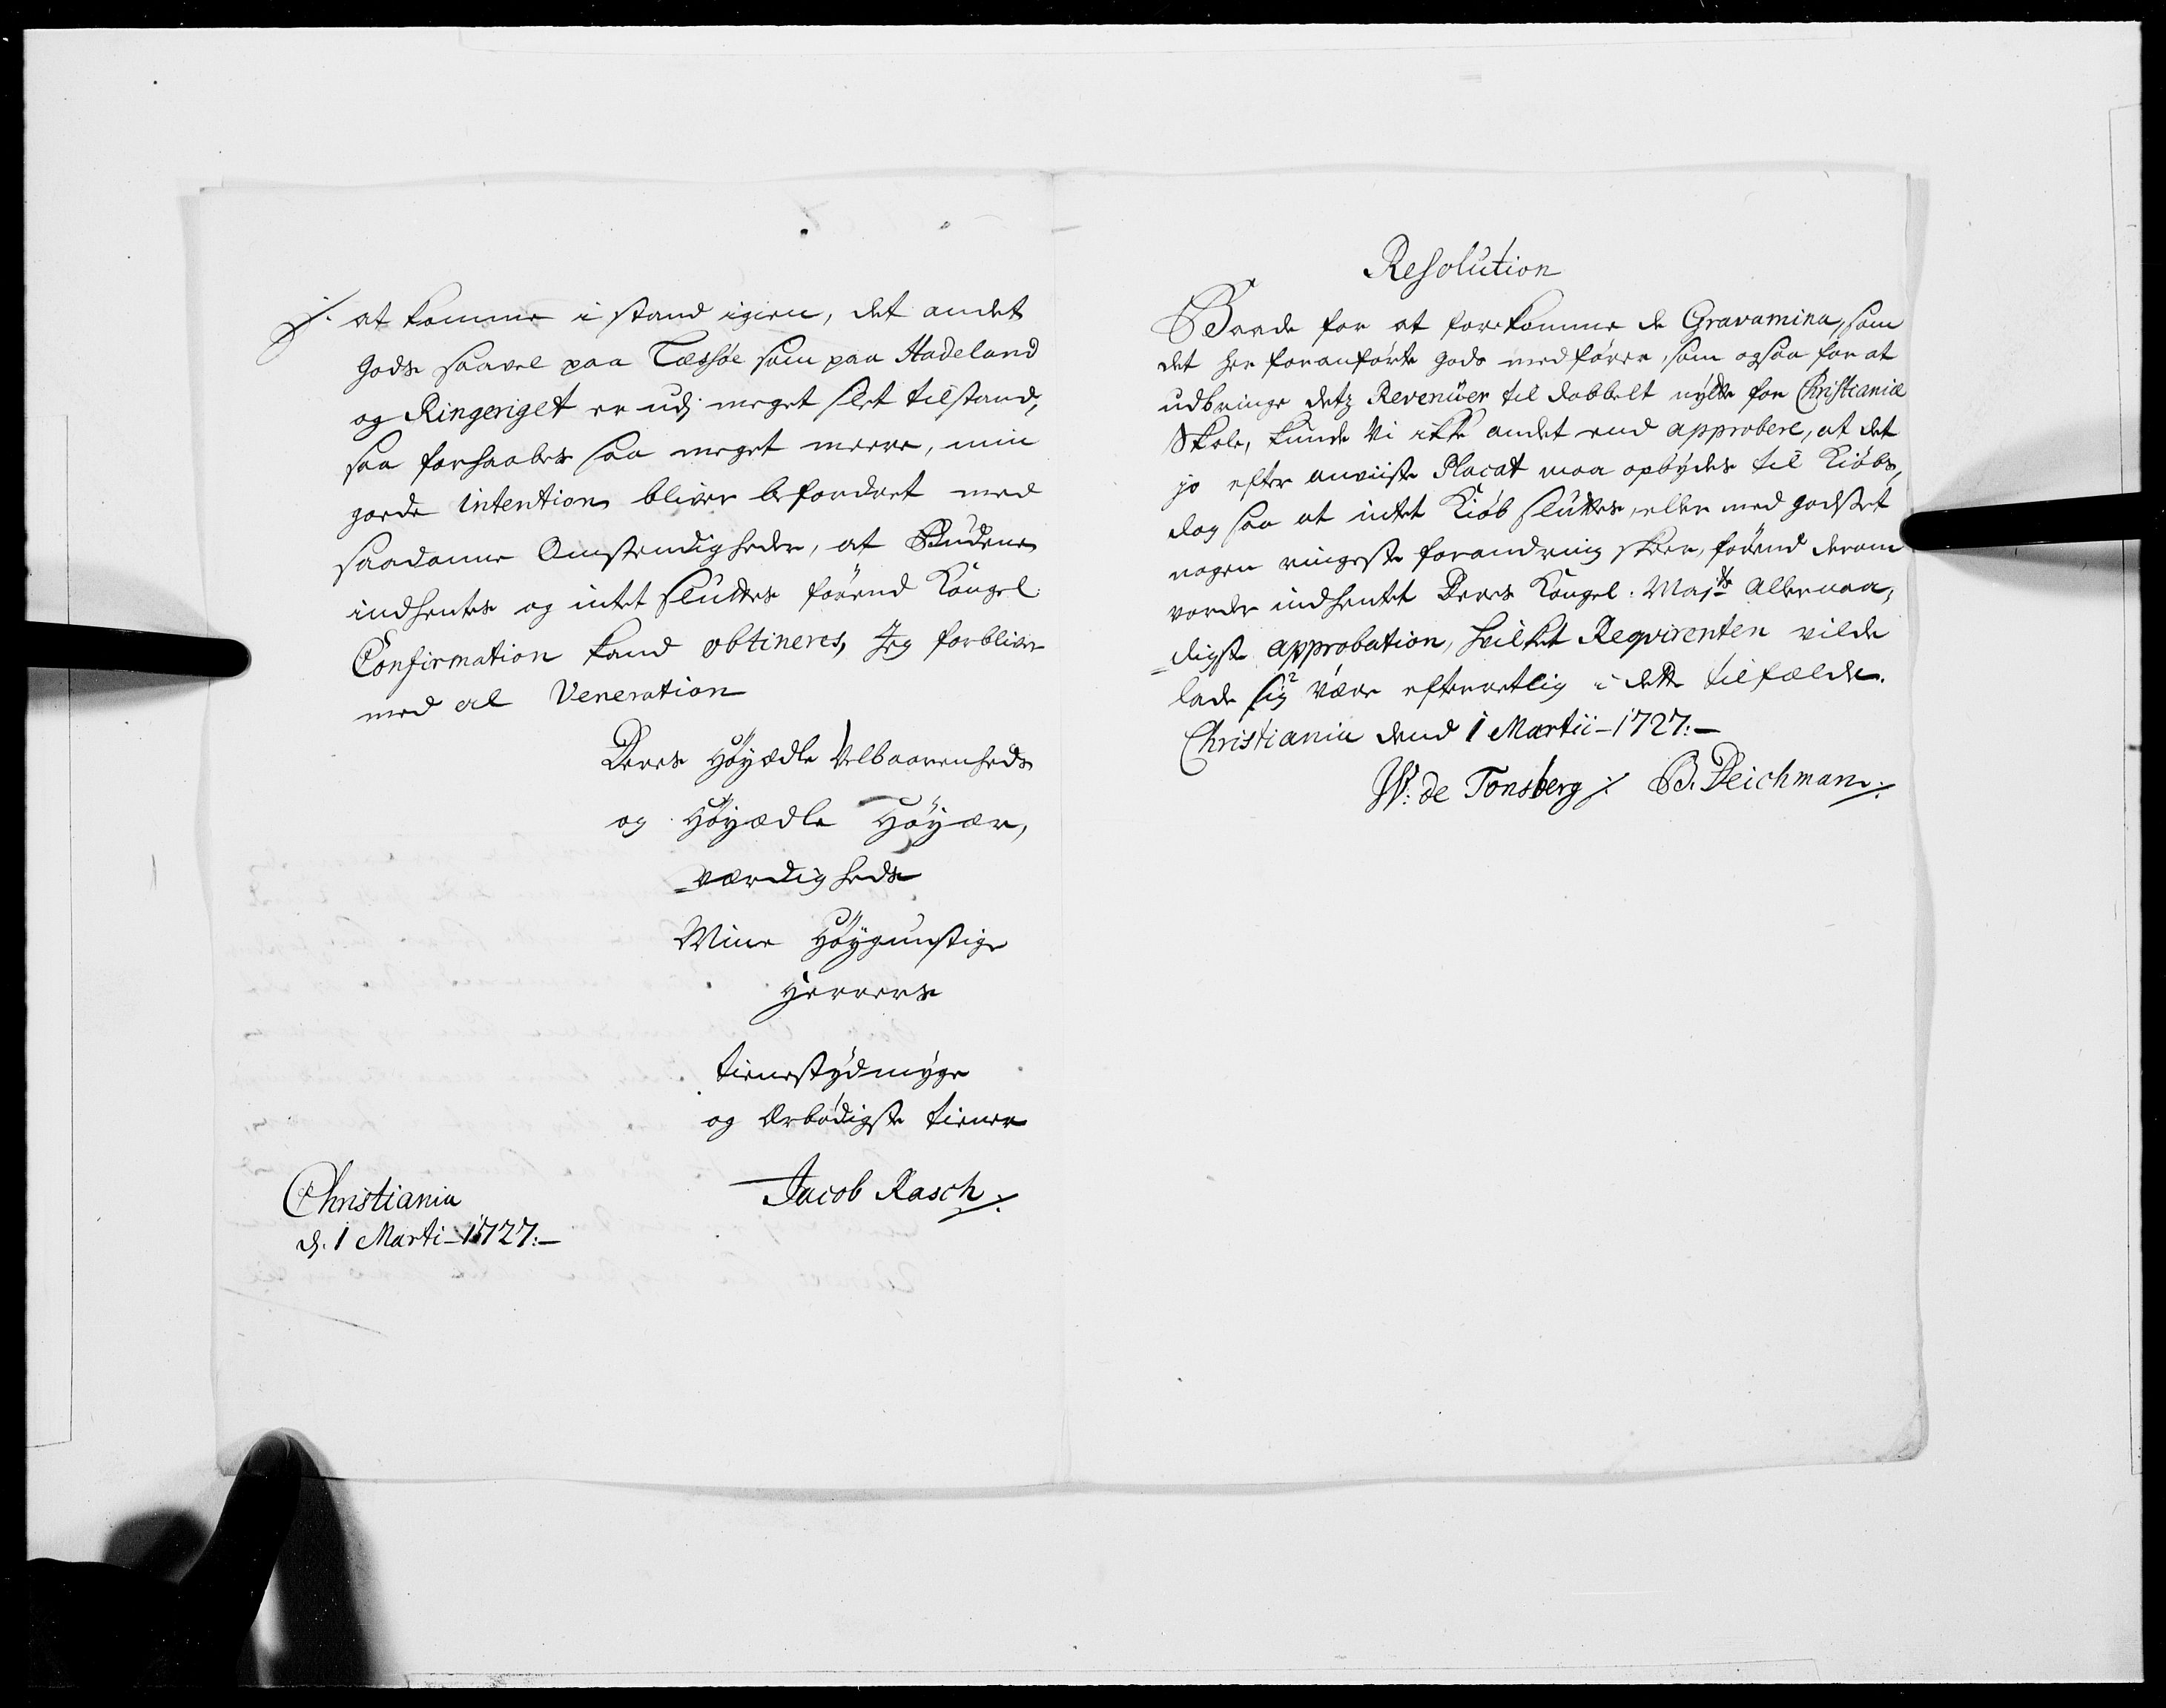 at komme i stand igien, det andet
Gods saavel paa Tæssøe som paa Hadeland
og Ringeriget er udj meget slet tilstand,
saa forhaabes saa meget meere, min
goede intention bliver befordret med
saadanne Omstendigheder, at Budene
indhentes og intet sluttes førend Kongel.
Confirmation kand obtineres, Jeg forbliver
med al Veneration
Deres Høyædle Velbaarenheds
og Høyædle Høyær,
værdigheds
Mine Høygunstige
Herrers
tienestydmyge
og Ærbødigste tiener
Jacob Rasch ./.
Christiania
d. 1 Marti-1727:-
Resolution
Baade for at forekomme de Gravamina, som
det her foranførte Gods medfører, som ogsaa for at
udbringe detz Revenüer til dobbelt nytte for Christianiæ
Skole, kunde Vi ikke andet end approbere, at det
jo efter anviiste Placat maa opbydes til Kiøbs,
dog saa at intet Kiøb sluttes, eller med godset
nogen ringeste forandring skeer, førend derom
vorder indhentet Deres Kongel. Majts Allernaa,
digste approbation, hvilket Reqvirenten vilde
lade sig være efterretlig i dette tilfælde.
Christiania dend 1 Martii-1727:-
W: de Tonsberg ./. B. Deichman ./.